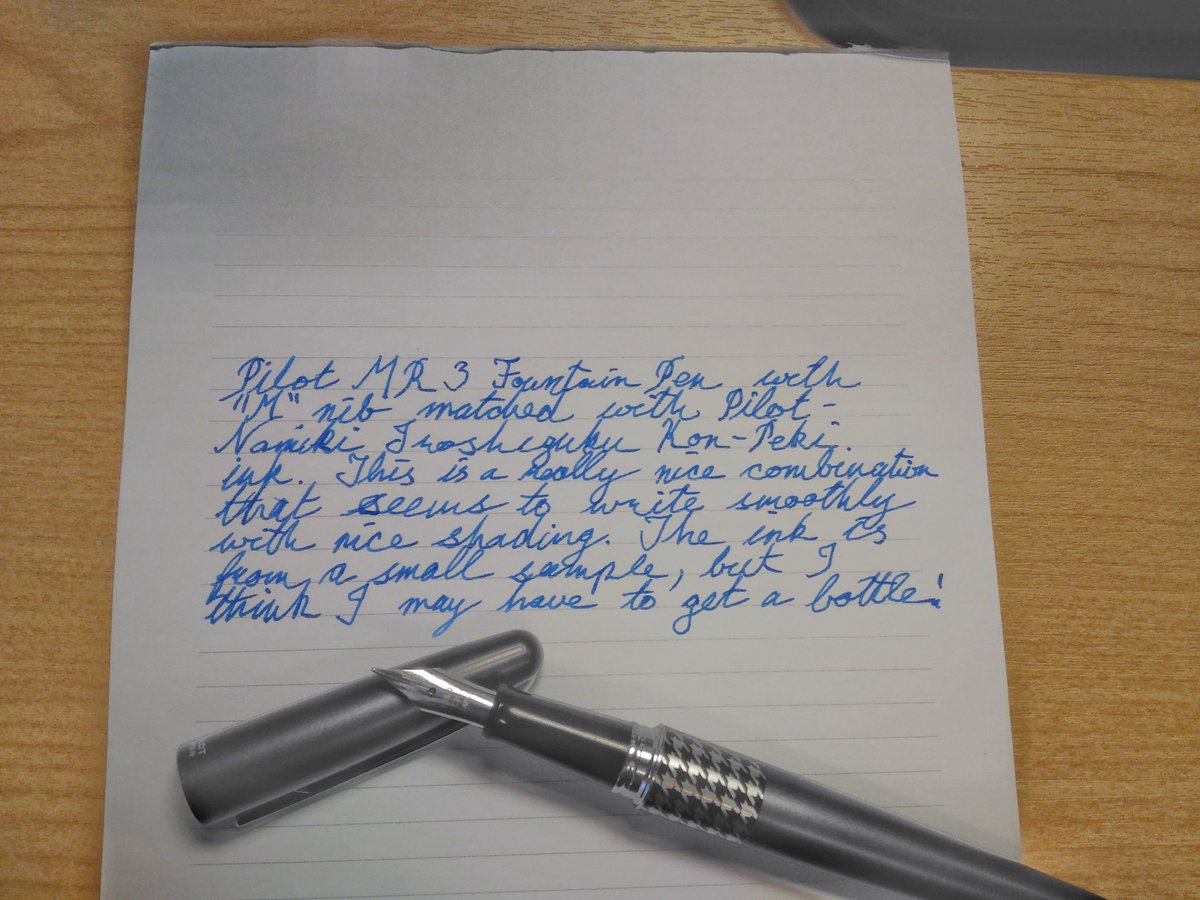 Pilot MR 3 Fountain Pen with
"M" nib matched with Pilot-
Namiki Iroshizuku Kon-Peki
ink. This is a really nice combination
that seems to write smoothly
with nice shading. The ink is
from a small sample, but I
think I may have to get a bottle!